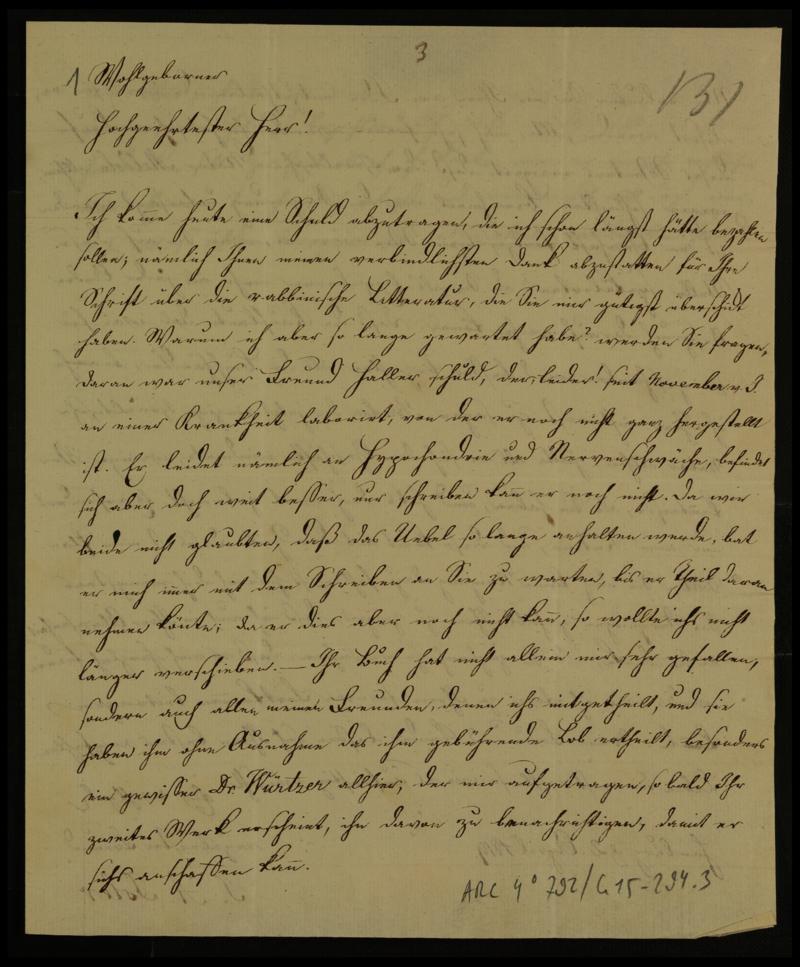 3
1 Wohlgeborner
13)
Hochgeehrtester Herr!
Ich komme heute eine Schuld abzutragen, die ich schon längst hätte bezahlen
sollen; nämlich Ihnen meinen verbindlichsten Dank abzustatten für Ihre
Schrift über die rabbinische Litteratur, die Sie mir gütigst überschickt
haben. Warum ich aber so lange gewartet habe? werden Sie fragen,
daran war unser Freund Haller schuld, der, leider! seit November v. J.
an einer Krankheit laborirt, von der er noch nicht ganz hergestellt
ist. Er leidet nämlich an Hypochondrie und Nervenschwäche, befindet
sich aber doch weit besser, nur schreiben kann er noch nicht. Da wir
beide nicht glaubten, daß das Uebel so lange anhalten werde, bat
er mich immer mit dem Schreiben an Sie zu warten, bis er Theil daran
nehmen könte; da er dies aber noch nicht kann, so wollte ichs nicht
länger verschieben. — Ihr Buch hat nicht allein mir sehr gefallen,
sondern auch allen meinen Freunden, denen ichs mitgetheilt, und sie
haben ihm ohne Ausnahme das ihm gebührende Lob ertheilt, besonders
ein gewisser Dr. Würtzer allhier, der mir aufgetragen, so bald Ihr
zweites Werk erscheint, ihn davon zu benachrichtigen, damit er
sichs anschaffen kann.
ARC 4° 792/G15-294.3